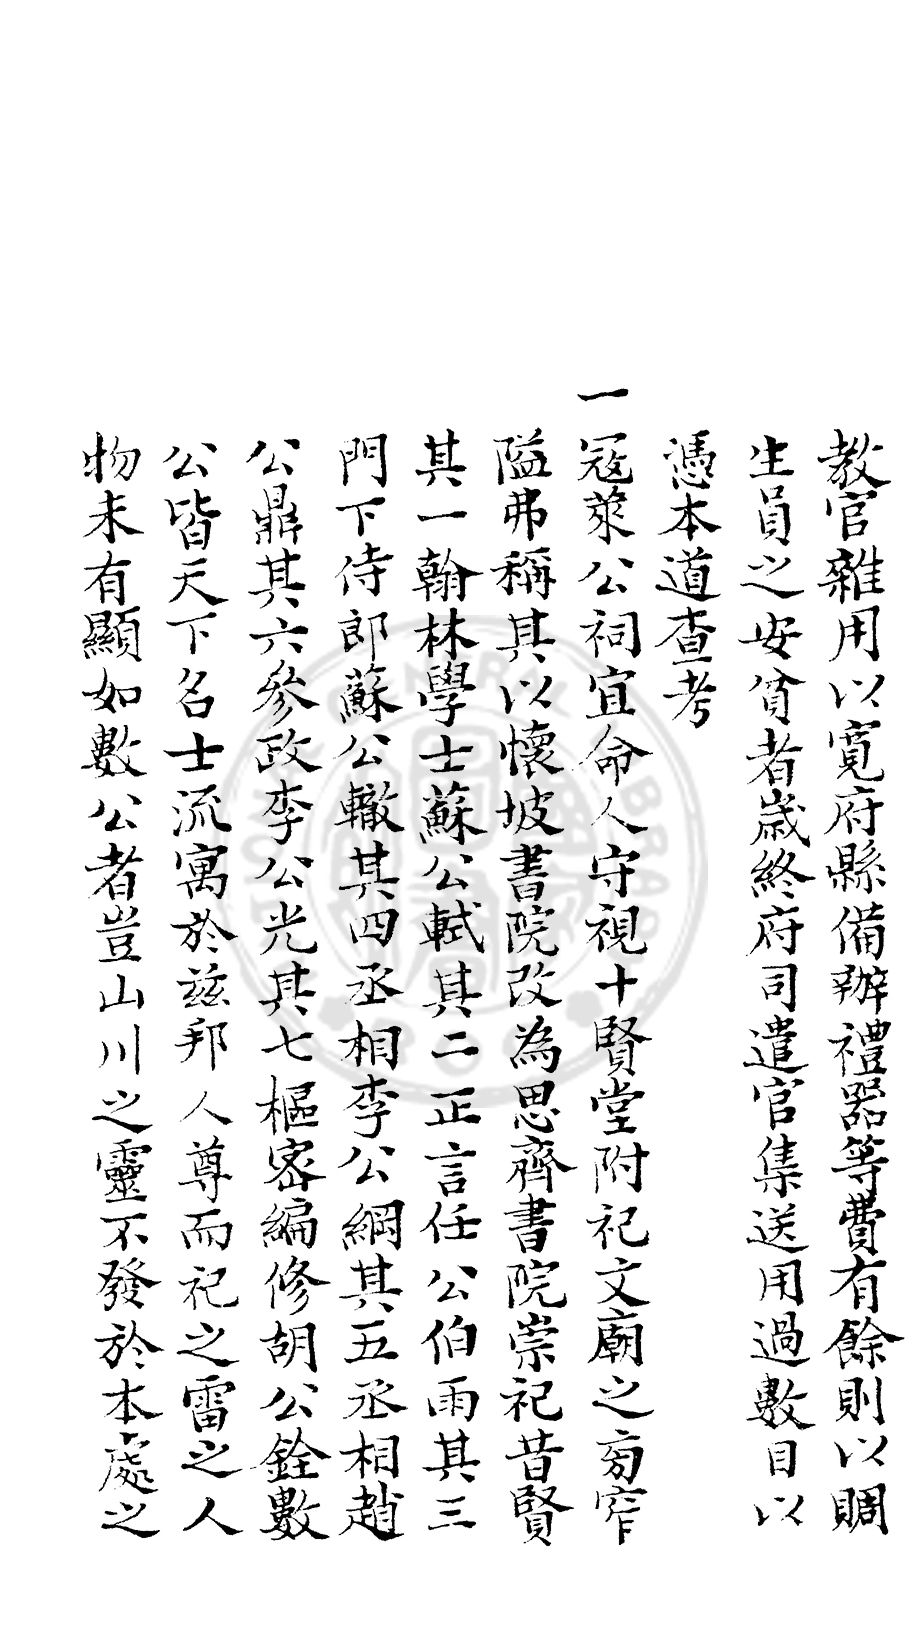 教官雜用以寬府縣備辦禮器等費有餘則以賙
生員之安貧者歲終府司遣官集送用過數目以
憑本道查考
一寇萊公祠宜命人守視十賢堂附祀文廟之旁窄
隘弗稱其以懷坡書院改為思齊書院崇祀昔賢
其一翰林學士蘇公軾其二正言任公伯雨其三
門下侍郎蘇公轍其四丞相李公綱其五丞相趙
公鼎其六參政李公光其七樞密編修胡公銓數
公皆天下名士流寓於茲邦人尊而祀之雷之人
物未有顯如數公者豈山川之靈不發於本處之